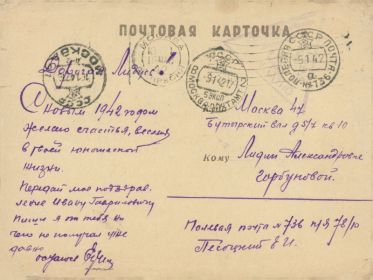 ПОЧТОВАЯ КАРТОЧКА
Добрая Лидуся!
С новым 1942 годом
желаю счастья, веселия
в твоей юношеской
жизни.
Передай мое поздрав.
Ивану Гавриловичу
Пиши я от тебя ни
чего не получал уже
давно
Москва 47
Бутырский вал д 5/7 кв 10
Кому
Лидии Александровне
Горбуновой.
Полевая почта №736 п/я 78/р
Песоцкий Е И.
МОСКВА
СССР
СССР ПОЧТА
5.1.42
№736